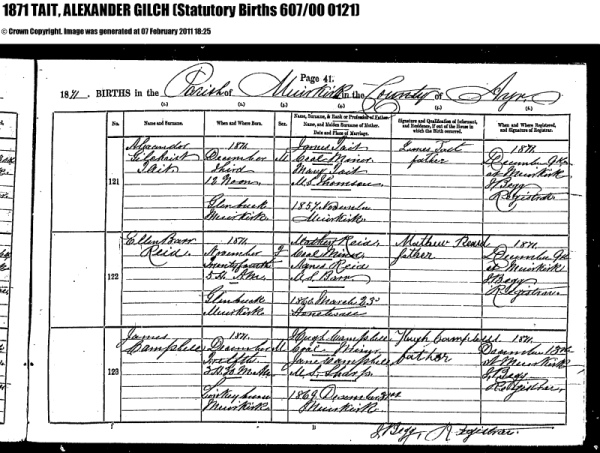 1871 TAIT, ALEXANDER GILCH (Statutory Births 607/00 0121)
© Crown Copyright. Image was generated at 07 February 2011 18:25
Page 41.
1871. BIRTHS in the Parish of Muirkirk in the County of Ayr
No.
Name and Surname.
When and Where Born.
Sex.
Name, Surname, & Rank or Profession of Father.
Name, and Maiden Surname of Mother.
Date and Place of Marriage.
Signature and Qualification of Informant, and Residence, if out of the House in which the Birth occurred.
When and Where Registered, and Signature of Registrar.
121
Alexander
Gilchrist
Tait
1871
December
Third
12 Noon
Glenbuck
Muirkirk
M
James Tait
Coal Miner
Mary Tait
M.S. Thomson
1857 November
Muirkirk
James Tait
father
1871
December 9th
at Muirkirk
J Begg
Registrar
122
Ellen Barr
Reid
1871
November
Twenty fourth
5h A.M.
Glenbuck
Muirkirk
F
Mathew Reid
Coal Miner
Agnes Reid
M.S. Barr
1866 March 23
Mathew Reard
father
1871
December 9th
at Muirkirk
J Begg
Registrar
123
James
Campbell
1871
December
Twelfth
Muirkirk
M
Hugh Campbell
Coal Miner
Jane Campbell
M.S. Sharp
1869 December
Muirkirk
Hugh Campbell
father
1871
December 13th
at Muirkirk
J Begg
Registrar
J Begg Registrar